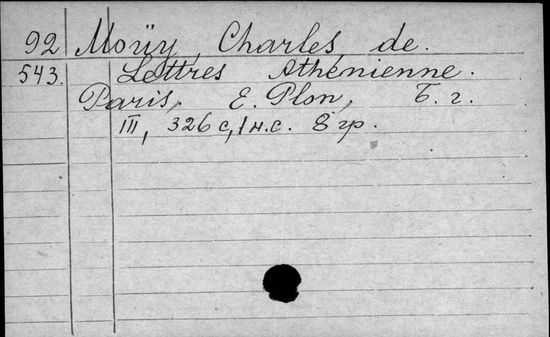 92 Moüy, Charles, de.
543. Lettres Athénienne.
Paris, E. Plon, Б. г.
III, 326 с, 1 н.с. 8 гр.